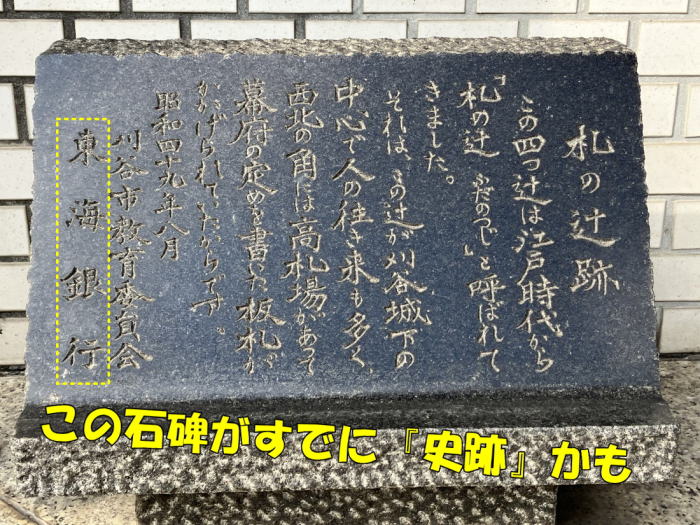 札の辻跡
この四つ辻は江戸時代から
「札の辻 ふだのつじ」と呼ばれて
きました。
それは、この辻が刈谷城下の
中心で人の往き来も多く、
西北の角には高札場があって
幕府の定めを書いた板札が
かかげられていたからです。
昭和四十九年八月
刈谷市教育委員会
東海銀行
この石碑がすでに『史跡』かも